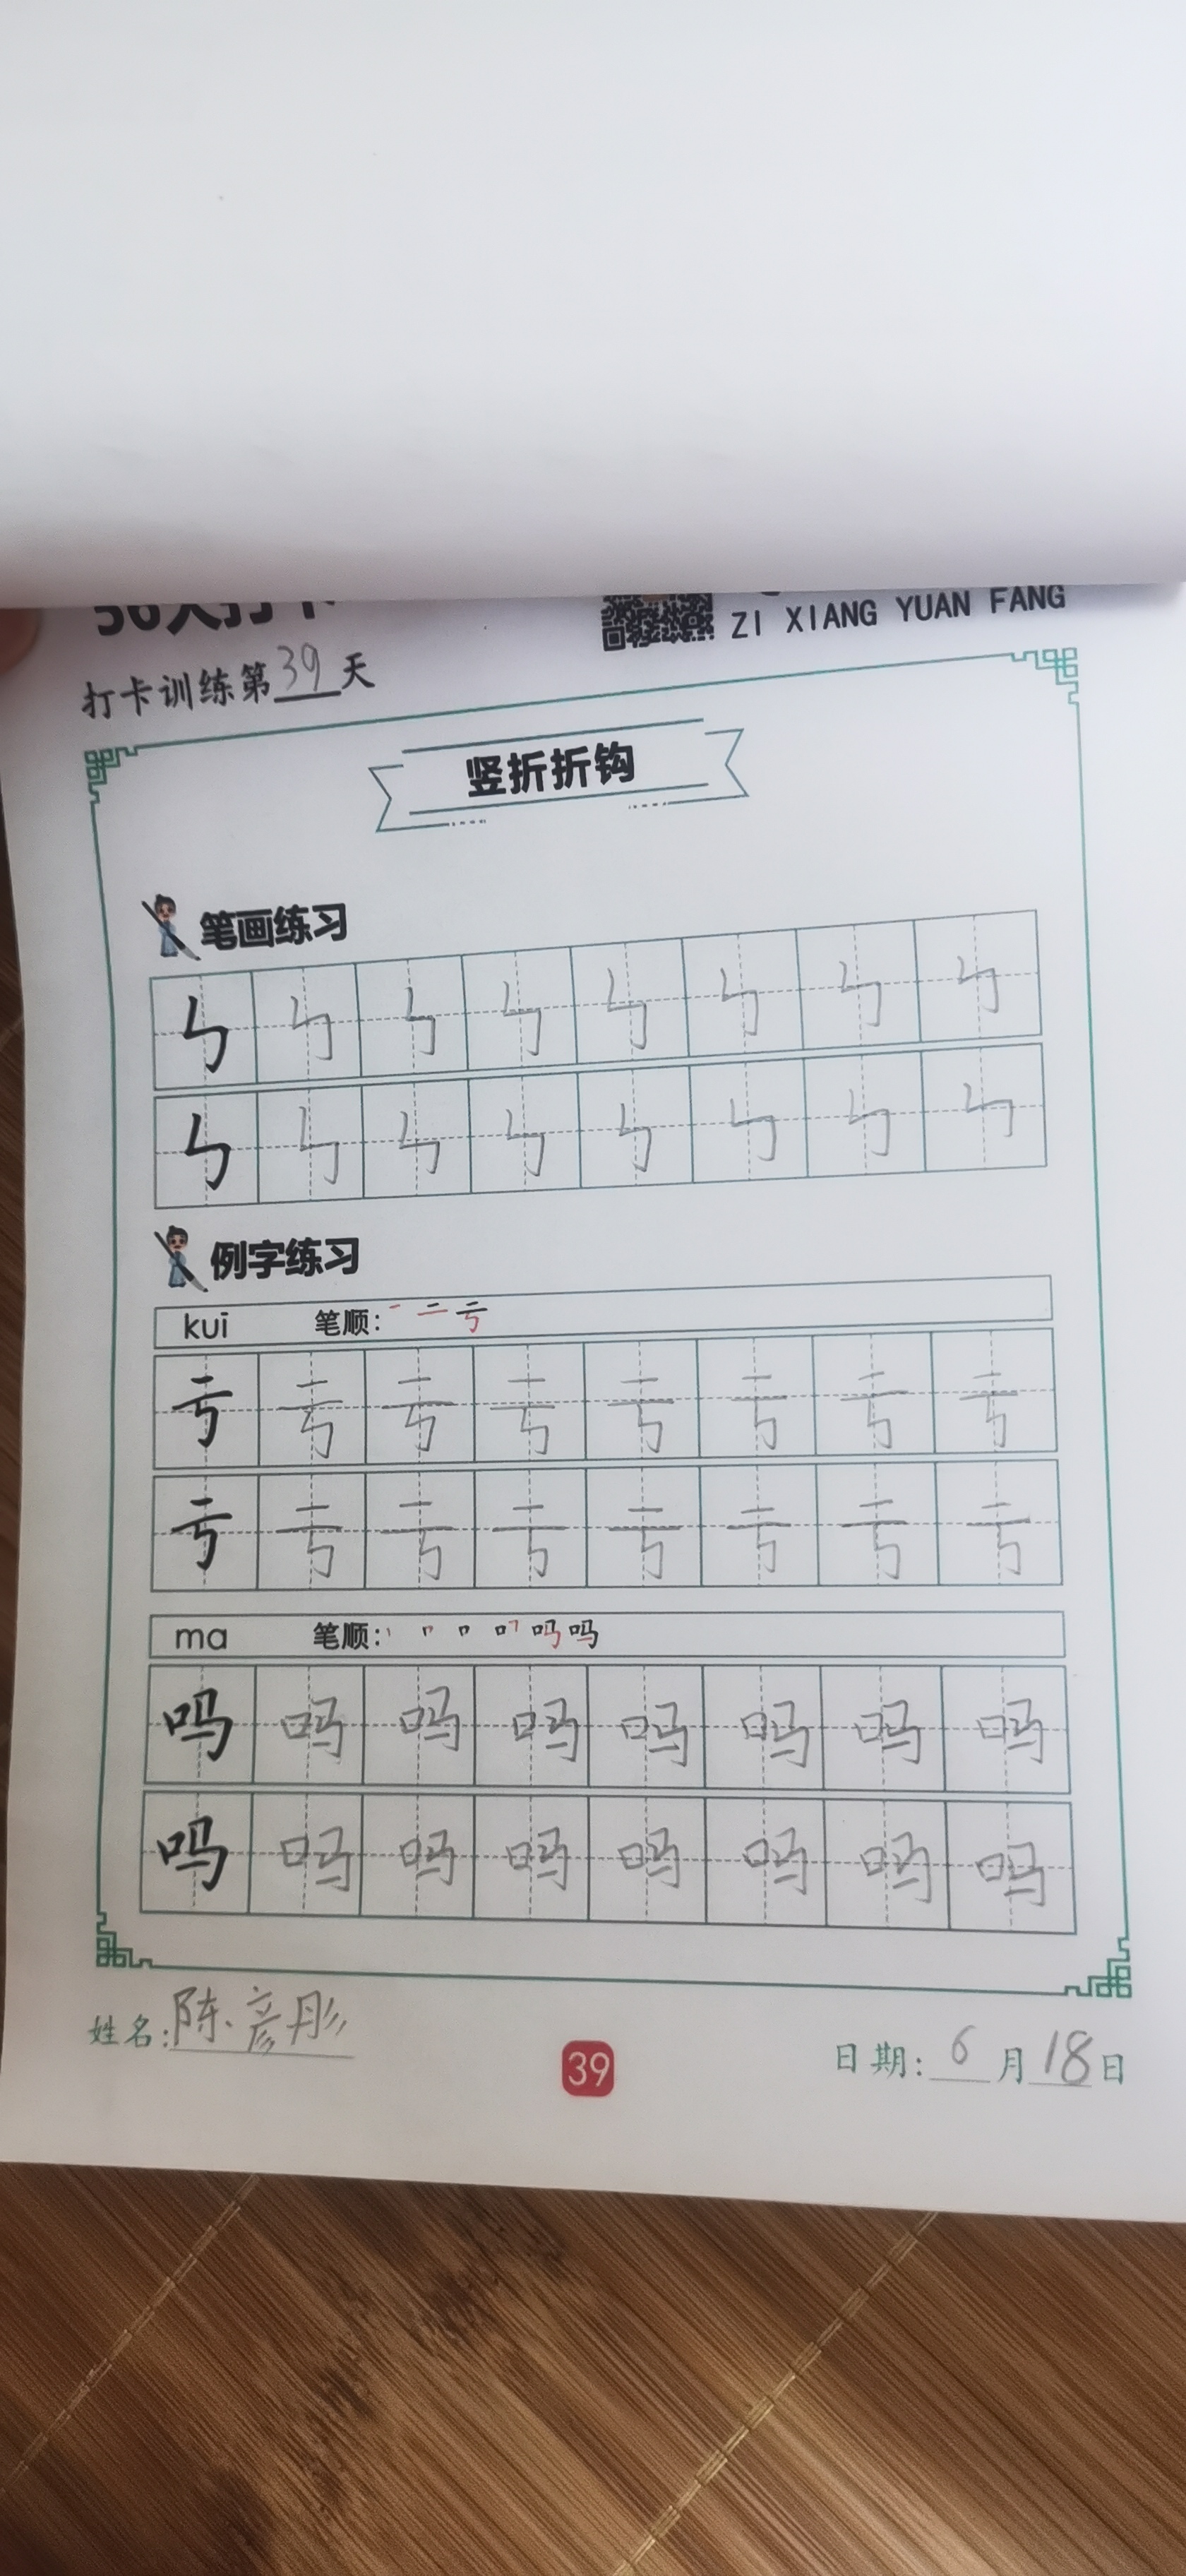 ZI XIANG YUAN FANG
打卡训练第39天
竖折折钩
笔画练习
ㄣ ㄣ ㄣ ㄣ ㄣ ㄣ ㄣ ㄣ
ㄣ ㄣ ㄣ ㄣ ㄣ ㄣ ㄣ ㄣ
例字练习
kuī 笔顺: 一 二 亏
亏 亏 亏 亏 亏 亏 亏 亏
亏 亏 亏 亏 亏 亏 亏 亏
ma 笔顺: 吗
吗 吗 吗 吗 吗 吗 吗 吗
吗 吗 吗 吗 吗 吗 吗 吗
姓名:陈彦彤
39
日期:6月18日